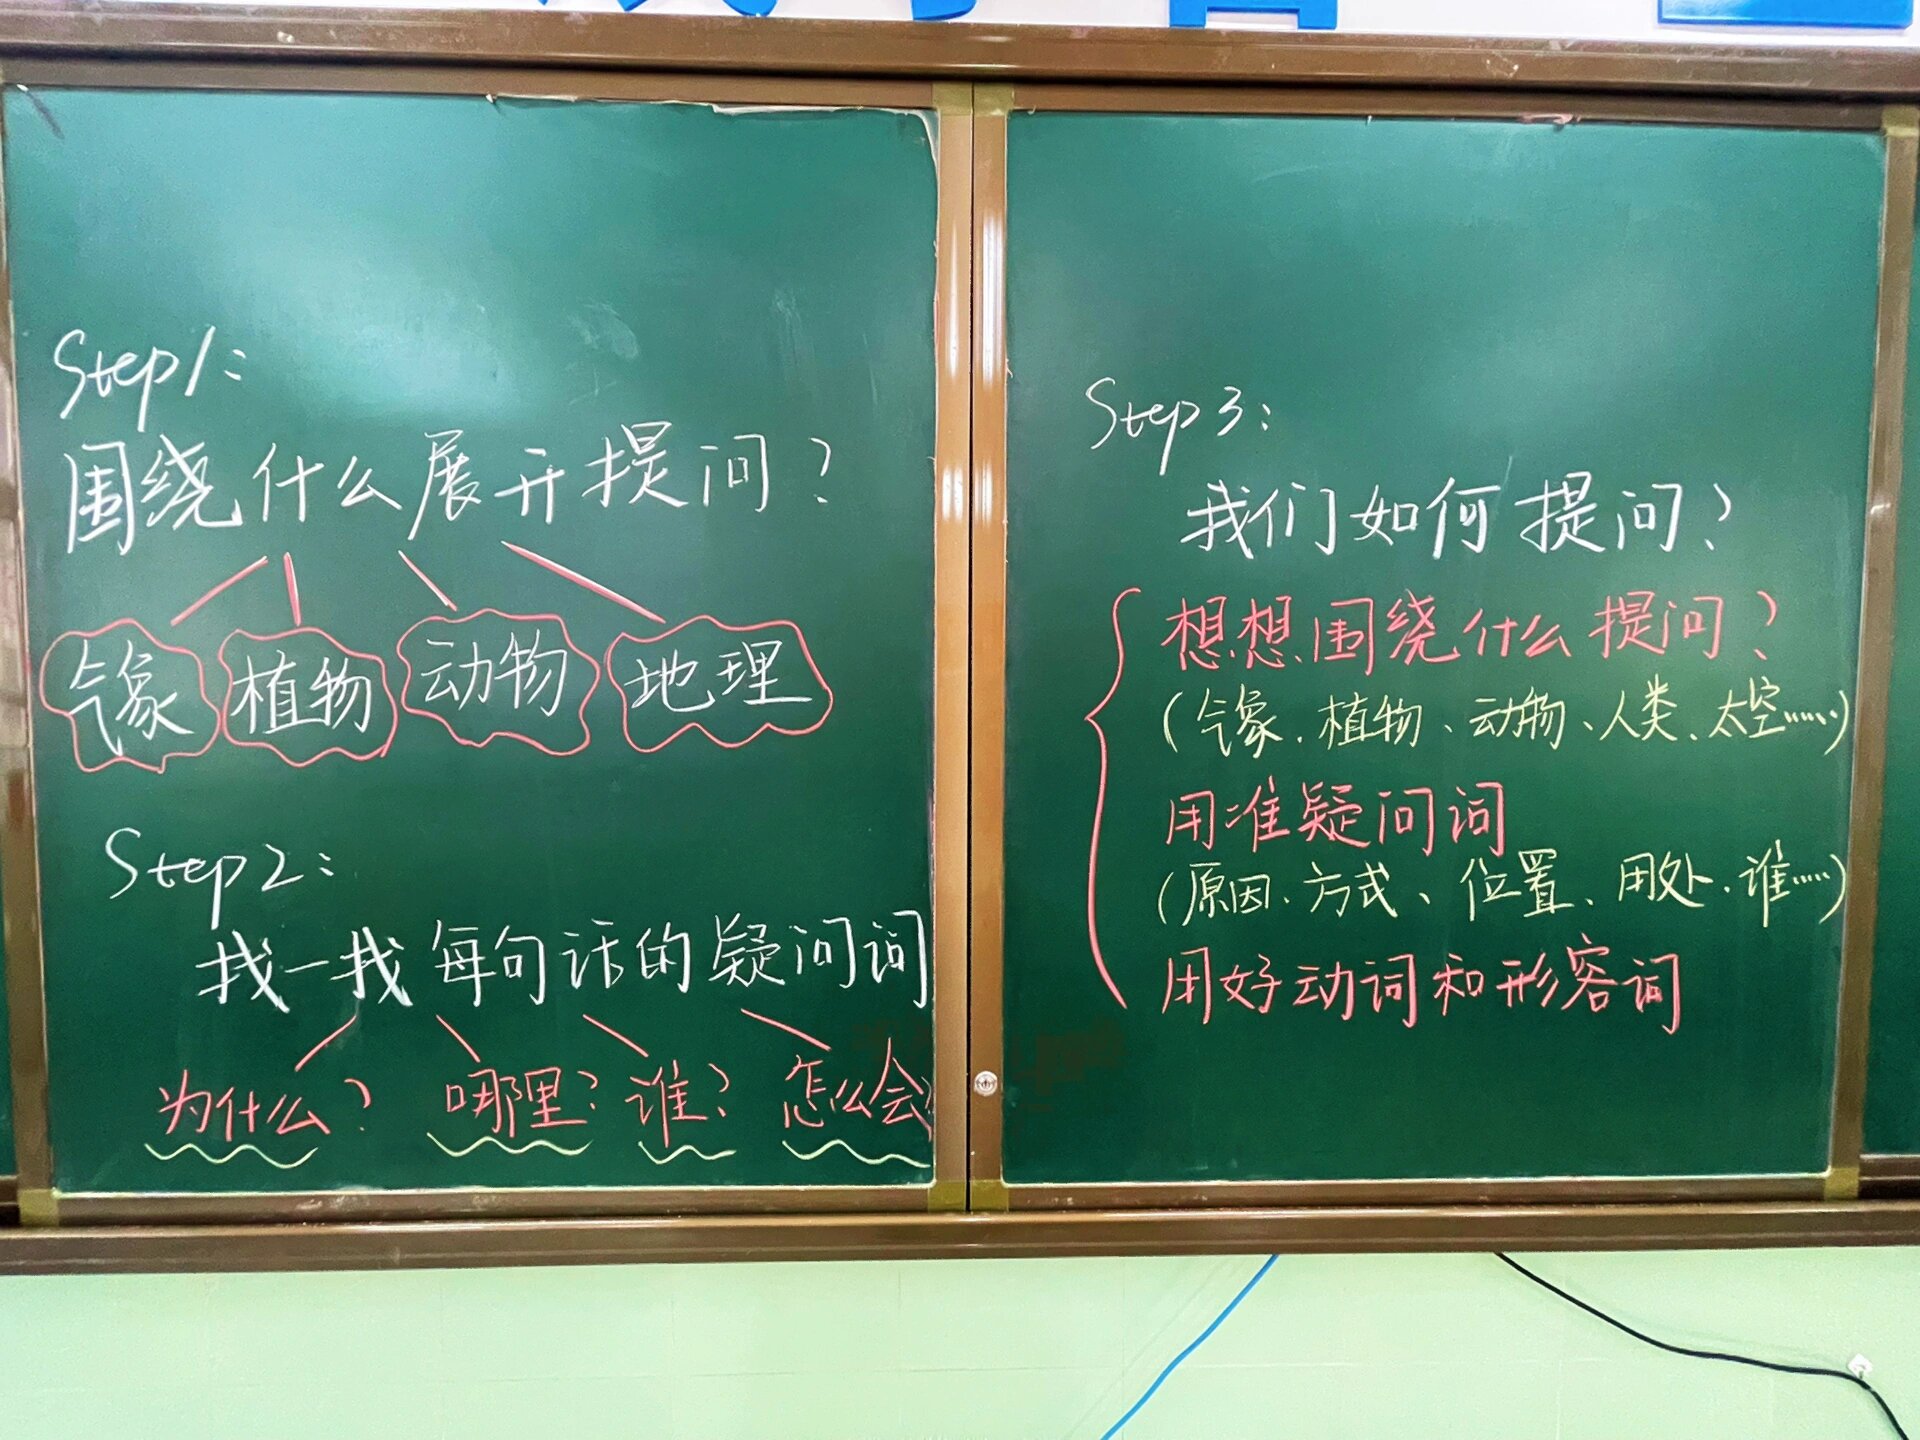 Step1:
围绕什么展开提问?
气象 植物 动物 地理
Step2:
找一找每句话的疑问词
为什么? 哪里? 谁? 怎么会?
Step3:
我们如何提问?
想想围绕什么提问?
(气象、植物、动物、人类、太空……)
用准疑问词
(原因、方式、位置、用处、谁……)
用好动词和形容词